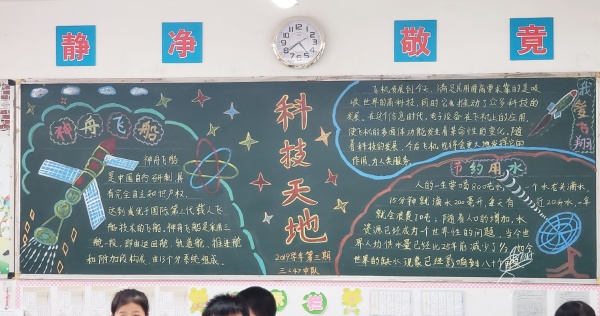 静 净 敬 竞
神舟飞船
神舟飞船
是中国自行研制,具
有完全自主知识产权,
达到或优于国际第三代载人飞
船技术的飞船。神舟飞船是采用三
舱一段,即由返回舱,轨道舱,推进舱
和附加段构成,由13个分系统组成。
科技天地
2019学年第二期
三(4)中队
我爱飞翔
飞机发展到今天,
吸世界的高科技,同时它也推动了众多科技的
发展。在这个信息时代,电子设备在飞机上的应用,
使飞机的多面体功能发生着革命性的变化,随
着科技的发展,今后飞机也将会更大地发挥它的
作用,为人类服务。
节约用水
人的一生要喝800吨水,一个水龙头滴水
15分钟就滴水200毫升,全天有近20升水,一年
就会浪费10吨,随着人口的增加,水
资源已经成为一个世界性的问题,当今世
界人均供水量已经比25年前减少1/3,如今
世界的缺水现象已经影响到八十个